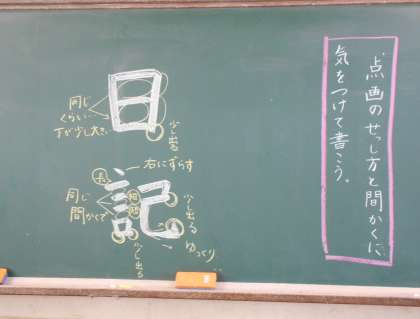 点画のせっし方と間かくに
気をつけて書こう。
日
同じ
くらい
下が少し大きい
少し出る
記
右にずらす
長
同じ
間かくで
少し出る
少し出る
ゆっくり